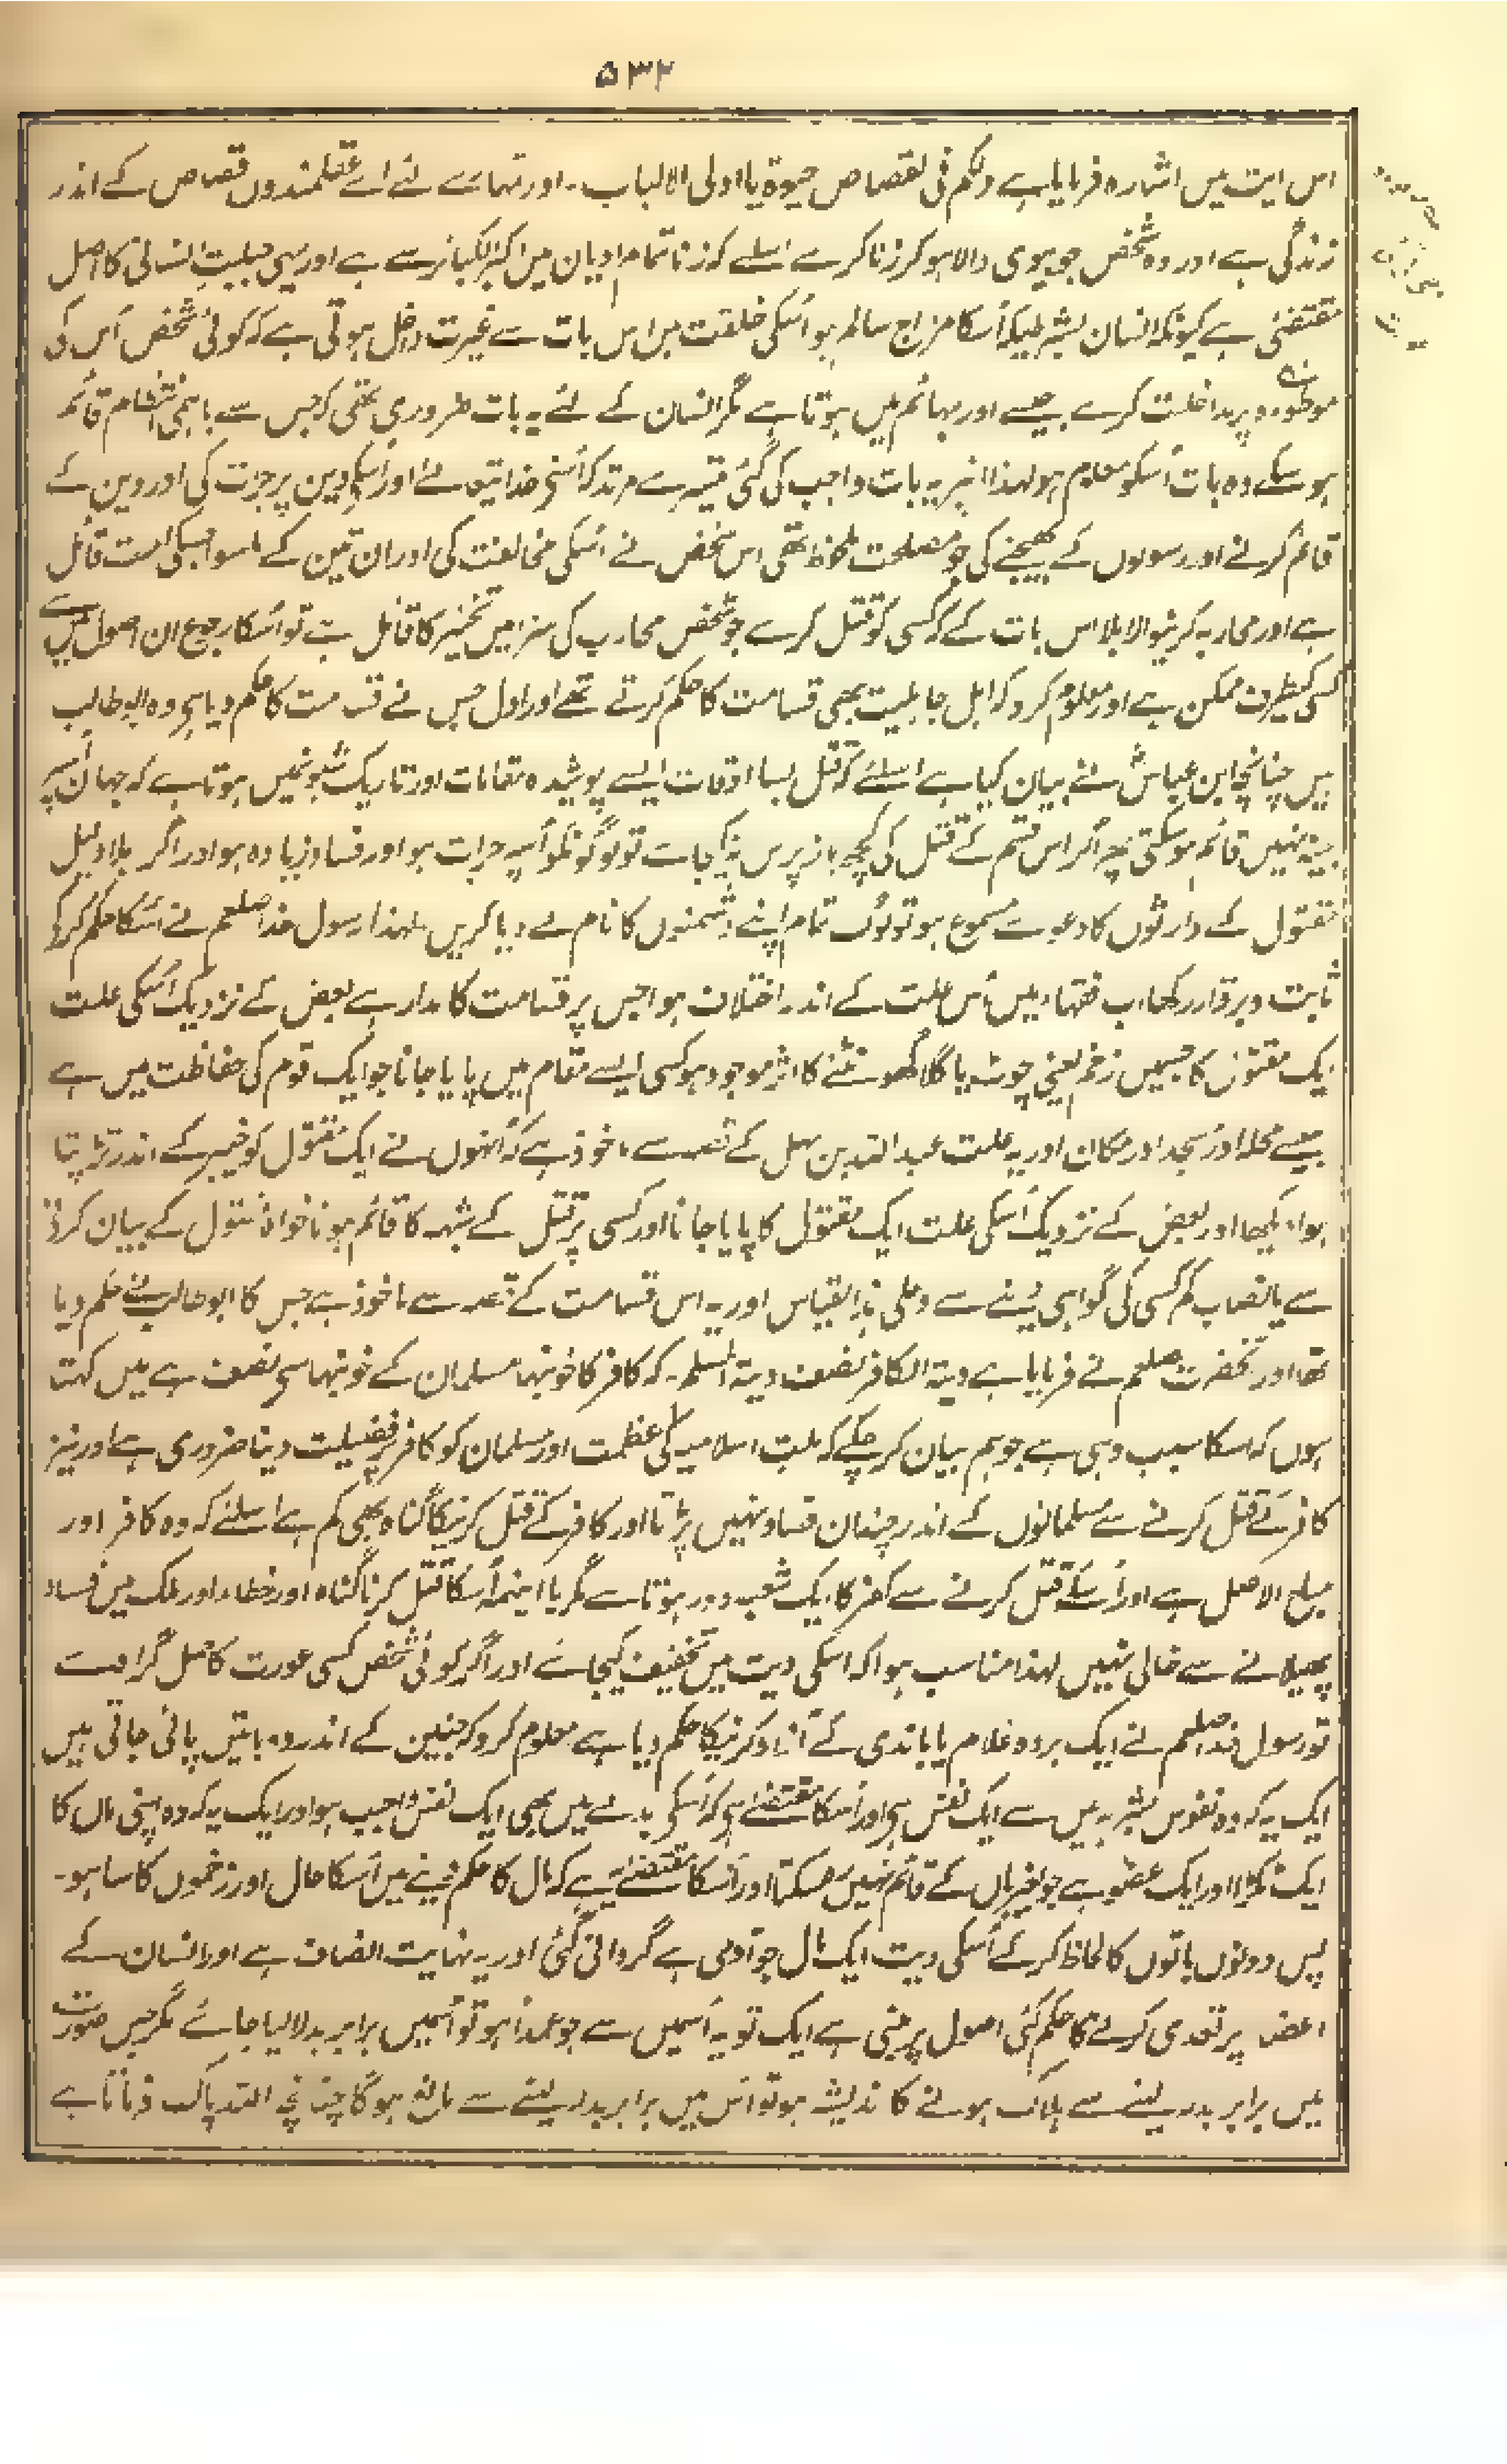 ۵۳۲
اس ایت میں اشارہ فرمایا ہے ولکم فی القصاص حیوۃ یا اولی الالباب۔ اور تمہارے لئے اے عقلمندوں قصاص کے اندر
زندگی ہے اور وہ شخص جو بیوی والا ہو کر زنا کرے اسلیے کہ زنا تمام ادیان میں اکبر الکبائر سے ہے اور یہی جبلیت انسانی کا اصل
مقتضیٰ ہے کیونکہ انسان بشرطیکہ اُسکا مزاج سالم ہو اسکی خلقت میں اس بات سے غیرت داخل ہوتی ہے کہ کوئی شخص اُس کی
موطوءہ پر مداخلت کرے جیسے اور بہائم میں ہوتا ہے مگر انسان کے لئے یہ بات ضروری تھی کہ جس سے باہمی انتظام قائم
ہو سکے وہ بات اُسکو معلوم ہو لہذا انپر یہ بات واجب کی گئی تیسرے مرتد کہ اُسنے خدا تیعالےٰ اور اُسکے دین پر جرات کی اور دین کے
قائم کرنے اور رسولوں کے بھیجنے کی جو مصلحت ملحوظ تھی اس شخص نے اُسکی مخالفت کی اور ان تین کے ماسوا جسکی امت قائل
ہے اور محاربہ کرنیوالا بلا اس بات کے کہ کسی کو قتل کرے جو شخص محارب کی سزا میں تخییر کا قائل ہے تو اُسکا رجوع ان اصول میں سے
کسی کیطرف ممکن ہے اور معلوم کرو کہ اہل جاہلیت بھی قسامت کا حکم کرتے تھے اور اول جس نے قسامت کا حکم دیا ہی وہ ابوطالب
ہیں چنانچہ ابن عباسؓ نے بیان کیا ہے اسلئے کہ قتل بسا اوقات ایسے پوشیدہ مقامات اور تاریک شبو نمیں ہوتا ہے کہ جہان اُسپر
بینہ نہیں قائم ہو سکتی پھر اگر اس قسم کے قتل کی کچھ باز پرس نہ کیجاے تو لوگونکو اُسپر جرات ہو اور فساد زیادہ ہو اور اگر بلا دلیل
مقتول کے وارثوں کا دعوےٰ مسموع ہو تو لوگ تمام اپنے دشمنوں کا نام لے دیا کریں لہذا رسول خدا صلعم نے اسکا حکم کرکے
ثابت و برقرار رکھا اب فقہاء میں اُس علت کے اندر اختلاف ہوا جس پر قسامت کا مدار ہے بعض کے نزدیک اُسکی علت
ایک مقتول کا جسمیں زخم یعنی چوٹ یا گلا گھونٹنے کا اثر موجود ہو کسی ایسے مقام میں پایا جانا جو ایک قوم کی حفاظت میں ہے
جیسے محلہ اور مسجد اور مکان اور یہ علت عبد اللہ بن سہل کے قصہ سے ماخوذ ہے کہ اُنہوں نے ایک مقتول کو خیبر کے اندر تڑپتا
ہوا دیکھا اور بعض کے نزدیک اُسکی علت ایک مقتول کا پایا جانا اور کسی پر قتل کے شبہہ کا قائم ہونا خواہ مقتول کے بیان کرنے
سے یا نصاب کم کسی کی گواہی دینے سے وعلی ہذا القیاس اور یہ اس قسامت کے قصہ سے ماخوذ ہے جس کا ابوطالب نے حکم دیا
تھا اور آنحضرت صلعم نے فرمایا ہے دیۃ الکافر نصف دیۃ المسلم۔ کہ کافر کا خونبہا مسلمان کے خونبہا سے نصف ہے میں کہتا
ہوں کہ اسکا سبب وہی ہے جو ہم بیان کر چکے کہ ملت اسلامیہ کی عظمت اور مسلمان کو کافر پر فضیلت دینا ضروری ہے اور نیز
کافر کے قتل کرنے سے مسلمانوں کے اندر چندان فساد نہیں پڑتا اور کافر کے قتل کرنیکا گناہ بھی کم ہے اسلئے کہ وہ کافر اور
مباح الاصل ہے اور اُسکے قتل کرنے سے کفر کا ایک شعبہ دور ہوتا ہے مگر با اینہمہ اُسکا قتل کرنا گناہ اور خطاء اور ملک میں فساد
پھیلانے سے خالی نہیں لہذا مناسب ہوا کہ اسکی دیت میں تخفیف کیجائے اور اگر کوئی شخص کسی عورت کا حمل گرا دے
تو رسول خدا صلعم نے ایک بردہ غلام یا باندی کے آزاد کرنیکا حکم دیا ہے معلوم کرو کہ جنین کے اندر دو باتیں پائی جاتی ہیں
ایک یہ کہ وہ نفوس بشریہ میں سے ایک نفس ہی اور اُسکا مقتضےٰ ہی کہ اُسکے بدلے میں بھی ایک نفس واجب ہو اور ایک یہ کہ وہ اپنی ماں کا
ایک ٹکڑا اور ایک عضو ہے جو بغیر ماں کے قائم نہیں ہو سکتا اور اُسکا مقتضےٰ یہ ہے کہ مال کا حکم دینے میں اُسکا حال اور زخموں کا سا ہو۔
پس دونوں باتوں کا لحاظ کر کے اُسکی دیت ایک مال جو آدمی ہے گردانی گئی اور یہ نہایت انصاف ہے اور انسان کے
اعضا پر تعدی کرنے کا حکم کئی اصول پر مبنی ہے ایک تو یہ اُسمیں سے جو عمداً ہو تو اُسمیں برابر بدلا لیا جائے مگر جس صورت
میں برابر بدلہ لینے سے ہلاک ہونے کا اندیشہ ہو تو اُس میں برابر بدلہ لینے سے مانع ہوگا چنانچہ اللہ پاک فرماتا ہے